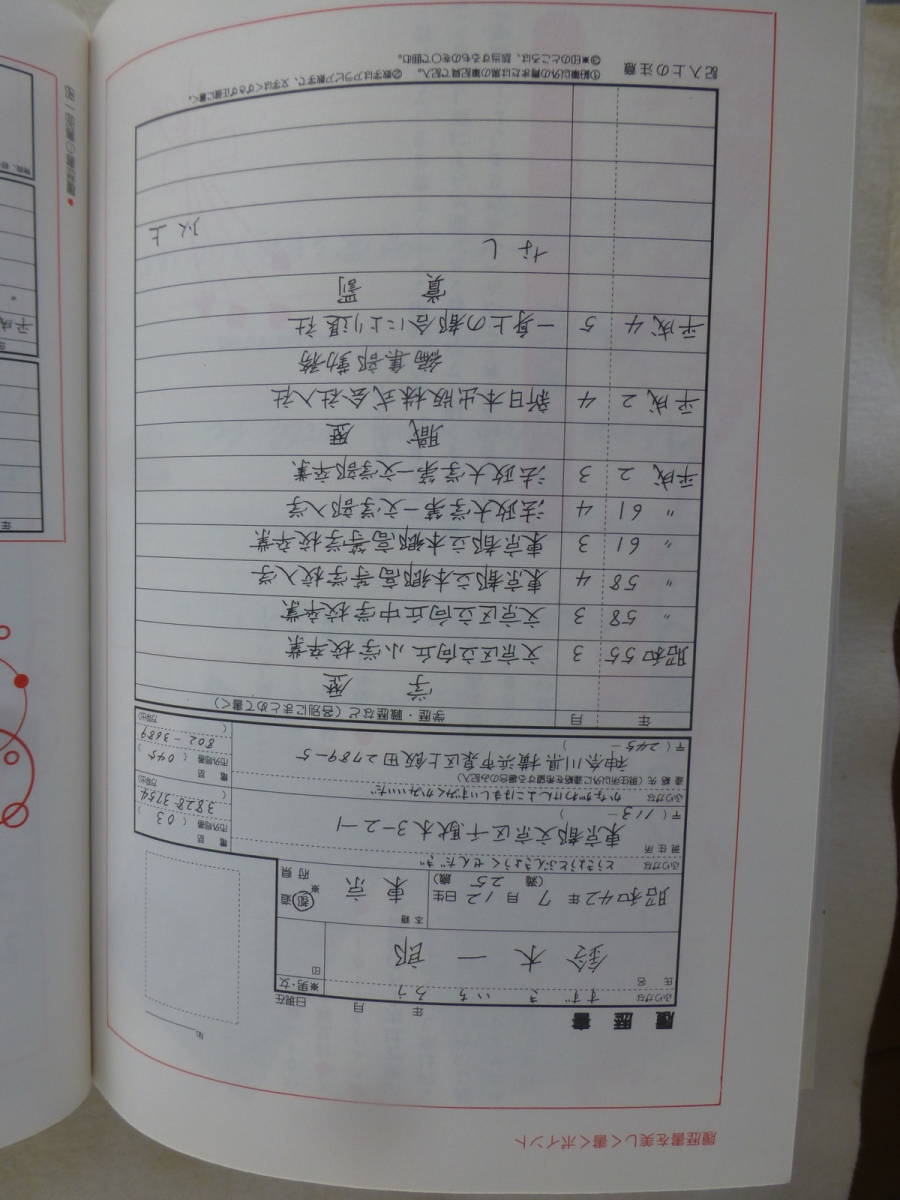 履歴書を美しく書くポイント
履歴書
年 月 日現在
ふりがな すずき いちろう
※男・女
氏名 鈴木一郎
印
昭和42年7月12日生（満25歳）
本籍 東京 ※都道府県
ふりがな とうきょうとぶんきょうくせんだぎ
現住所（〒113－ ）
東京都文京区千駄木3-2-1
電話 市外局番（03）
3828-3754
（ 方呼出）
ふりがな かながわけんよこはましいずみくかみいいだ
連絡先（現住所以外に連絡を希望する場合のみ記入）
（〒245－ ）
神奈川県横浜市泉区上飯田2789-5
電話 市外局番（045）
802-3689
（ 方呼出）
年 月 学歴・職歴など（各別にまとめて書く）
学歴
昭和55 3 文京区立向丘小学校卒業
〃 58 3 文京区立向丘中学校卒業
〃 58 4 東京都立本郷高等学校入学
〃 61 3 東京都立本郷高等学校卒業
〃 61 4 法政大学第一文学部入学
平成2 3 法政大学第一文学部卒業
職歴
平成2 4 新日本出版株式会社入社
編集部勤務
平成4 5 一身上の都合により退社
賞罰
なし
以上
記入上の注意
①鉛筆以外の青または黒の筆記具で記入。 ②数字はアラビア数字で、文字はくずさず正確に書く。
③※印のところは、該当するものを○で囲む。
年
平成
〃